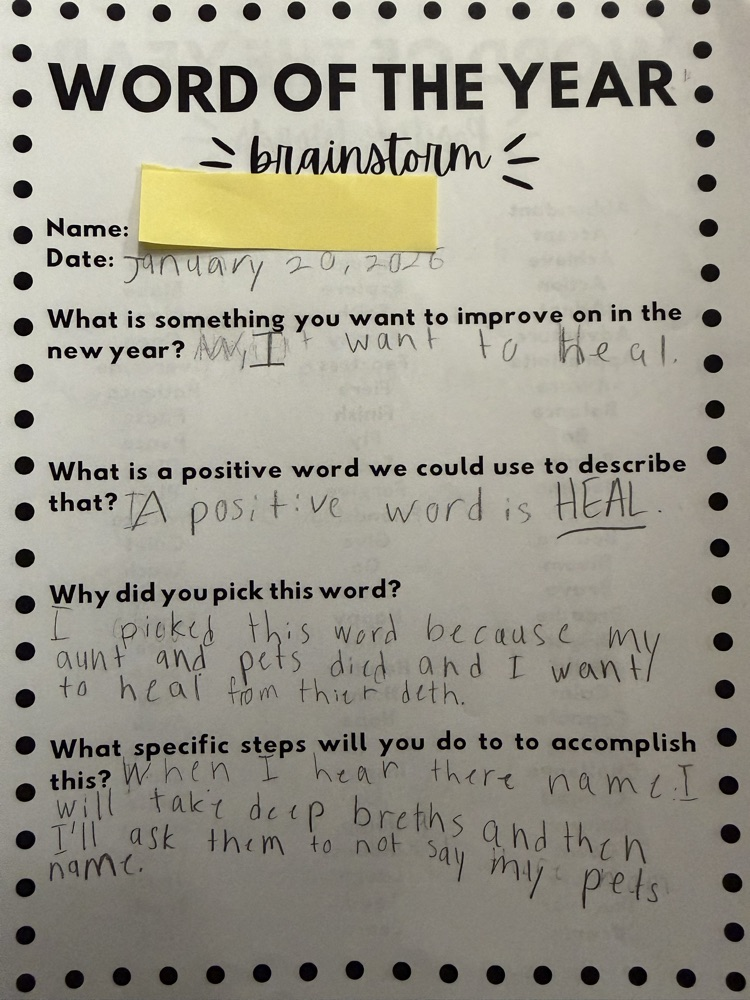 WORD OF THE YEAR
brainstorm
Name:
Date: January 20, 2026
What is something you want to improve on in the
new year? I want to heal.
What is a positive word we could use to describe
that? A positive word is HEAL.
Why did you pick this word?
I picked this word because my
aunt and pets died and I want
to heal from thier deth.
What specific steps will you do to to accomplish
this? When I hear there name I
will take deep breths and then
I'll ask them to not say my pets
name.